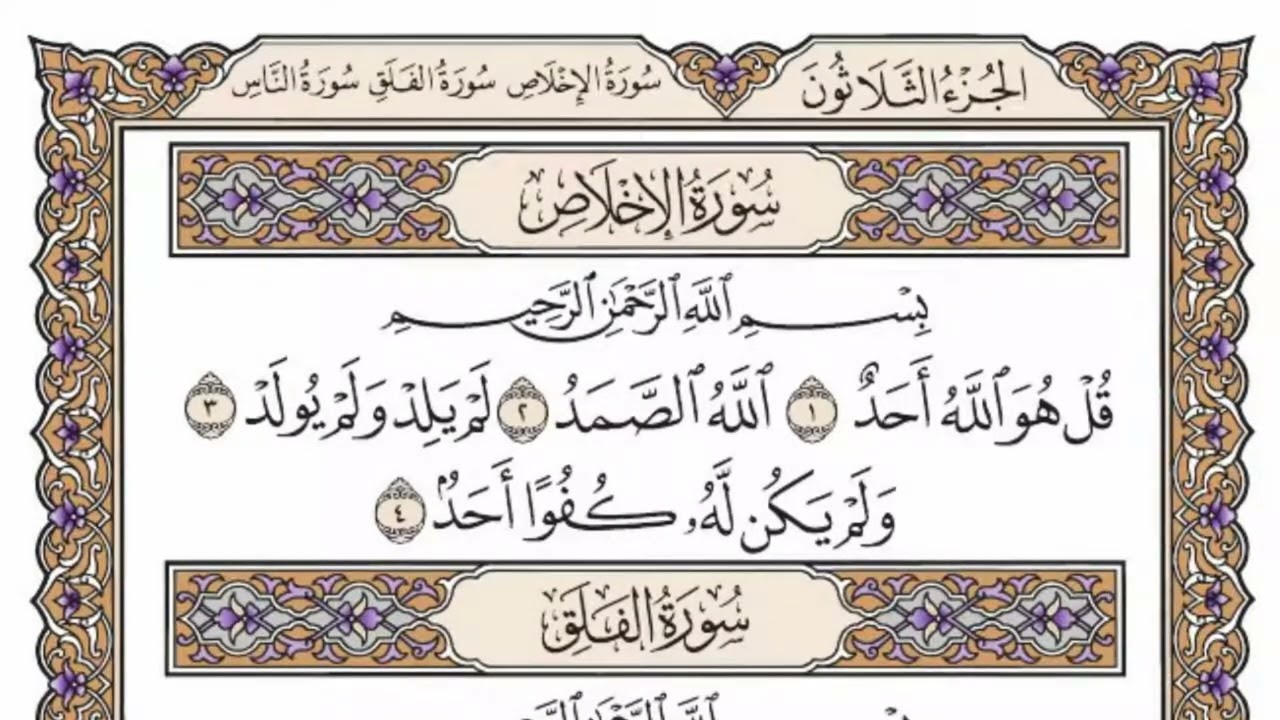 الجُزْءُ الثَّلَاثُونَ
سُورَةُ الإِخْلَاصِ سُورَةُ الفَلَقِ سُورَةُ النَّاسِ
سُورَةُ الإِخْلَاصِ
بِسْمِ ٱللَّهِ ٱلرَّحْمَٰنِ ٱلرَّحِيمِ
قُلْ هُوَ ٱللَّهُ أَحَدٌ ١ ٱللَّهُ ٱلصَّمَدُ ٢ لَمْ يَلِدْ وَلَمْ يُولَدْ ٣
وَلَمْ يَكُن لَّهُۥ كُفُوًا أَحَدٌۢ ٤
سُورَةُ الفَلَقِ